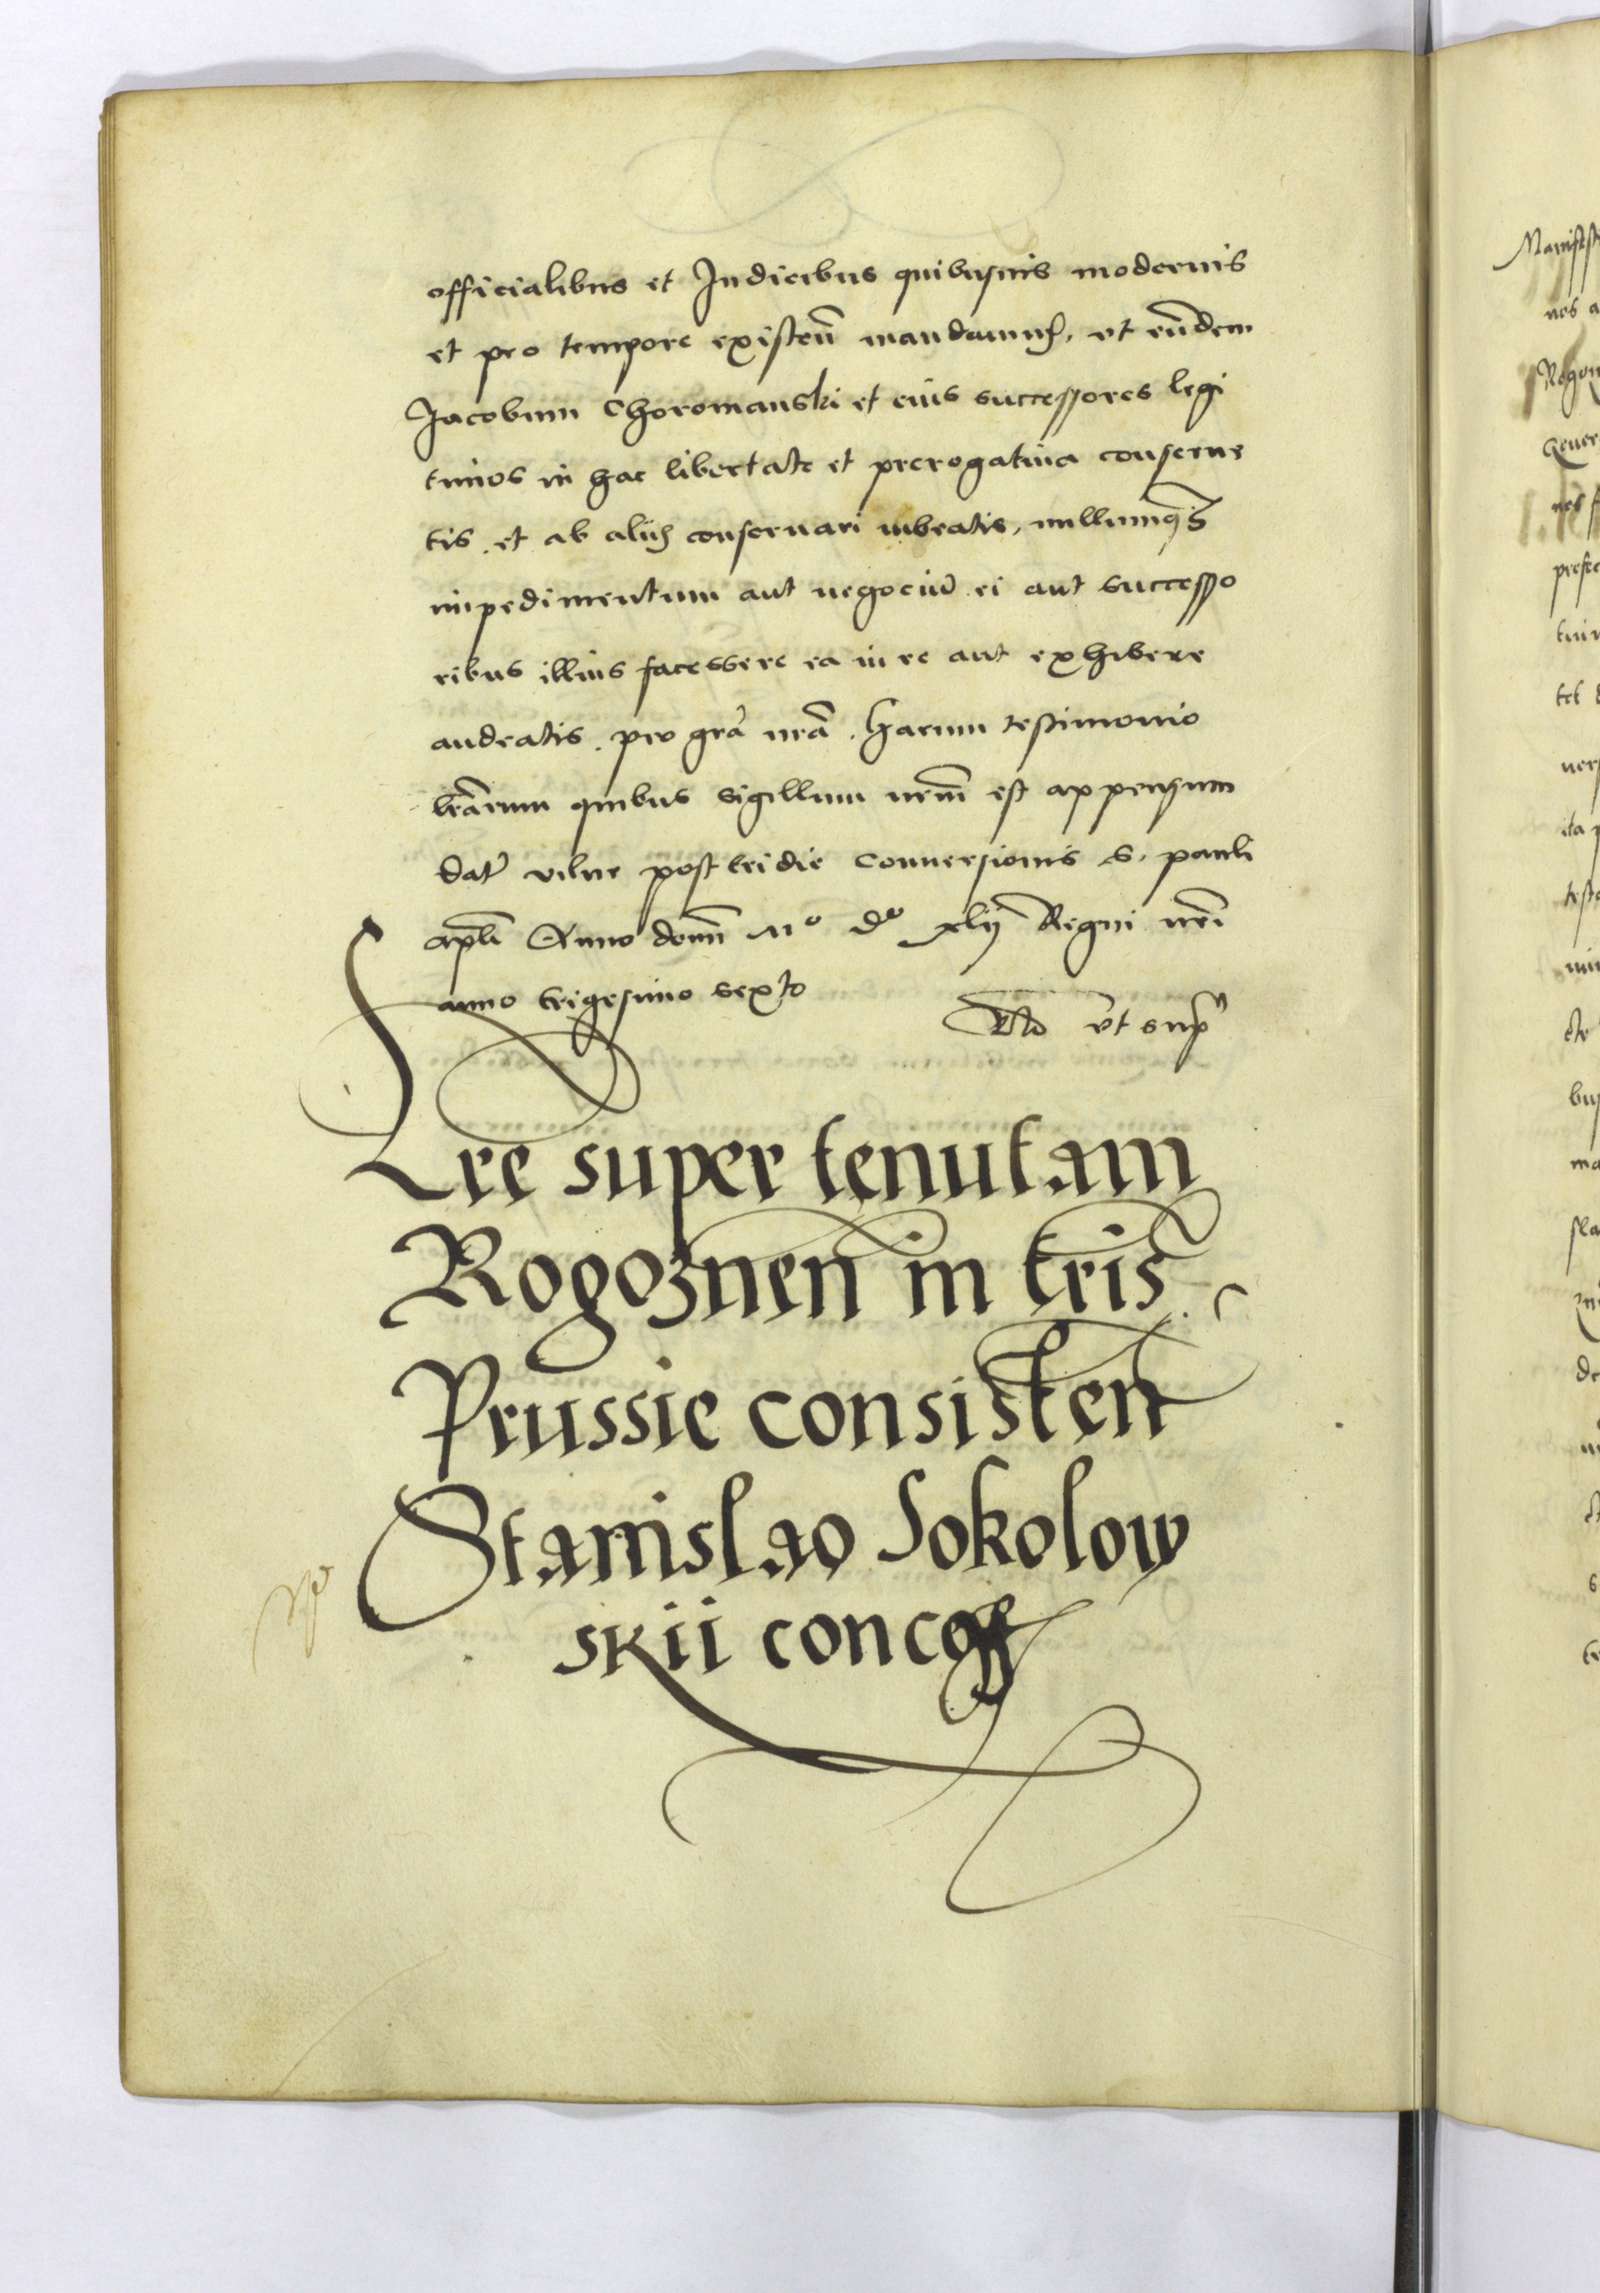 officialibus et Iudicibus quibusuis modernis
et pro tempore existen̄ mandamus, vt eūdem
Jacobum Choromanski et eius successores legi
timos in hac libertate et prerogatiua conserue
tis, et ab aliis conseruari iubeatis, nullumq̃
impedimentum aut negociū ei aut successo
ribus illius facessere ea in re aut exhibere
audeatis. pro grã nrã. Harum testimonio
lrãrum quibus sigillum nrm̃ est appensum
datʼ vilne postridie conuersionis S. pauli
apl̃i Anno dom̃ Mº dº xlij Regni nrĩ
anno trigesimo sexto
vt sup̃
Lre super tenutam
Rogoznen in tris
Prussie consisten
Stanislao Sokolow
skii concesse
Manifestu
nos a
Rogoz
Gener